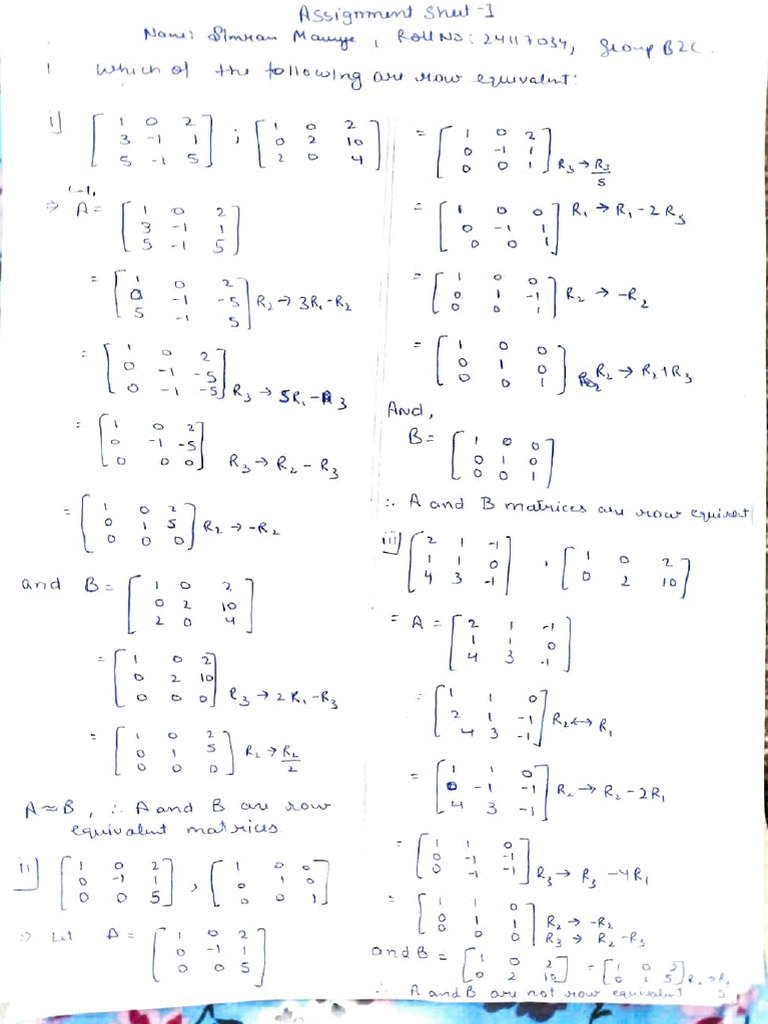 Assignment Sheet-1
Name: Simran Maurye, Roll No: 24117034, Group B2C.
1 Which of the following are row equivalent:
i] [ 1 0 2 ; [ 1 0 2
3 -1 1 0 2 10
5 -1 5 ] 2 0 4 ]
⇒ A = [ 1 0 2
3 -1 1
5 -1 5 ]
= [ 1 0 2
0 -1 -5
5 -1 5 ] R2 → 3R1-R2
= [ 1 0 2
0 -1 -5
0 -1 -5 ] R3 → 5R1-R3
= [ 1 0 2
0 -1 -5
0 0 0 ] R3 → R2 - R3
= [ 1 0 2
0 1 5
0 0 0 ] R2 → -R2
and B = [ 1 0 2
0 2 10
2 0 4 ]
= [ 1 0 2
0 2 10
0 0 0 ] R3 → 2R1-R3
= [ 1 0 2
0 1 5
0 0 0 ] R2 → R2/2
A≈B, ∴ A and B are row
equivalent matrices
ii] [ 1 0 2 , [ 1 0 0
0 -1 1 0 1 0
0 0 5 ] 0 0 1 ]
⇒ Let A = [ 1 0 2
0 -1 1
0 0 5 ]
= [ 1 0 2
0 -1 1
0 0 1 ] R3 → R3/5
= [ 1 0 0
0 -1 1
0 0 1 ] R1 → R1-2R3
= [ 1 0 0
0 1 -1
0 0 1 ] R2 → -R2
= [ 1 0 0
0 1 0
0 0 1 ] R2 → R2+R3
And,
B = [ 1 0 0
0 1 0
0 0 1 ]
∴ A and B matrices are row equivalent
iii] [ 2 1 -1 , [ 1 0 2
1 1 0 0 2 10 ]
4 3 -1 ]
= A = [ 2 1 -1
1 1 0
4 3 -1 ]
= [ 1 1 0
2 1 -1
4 3 -1 ] R2 ↔ R1
= [ 1 1 0
0 -1 -1
4 3 -1 ] R2 → R2-2R1
= [ 1 1 0
0 -1 -1
0 -1 -1 ] R3 → R3-4R1
= [ 1 1 0
0 1 1
0 0 0 ] R2 → -R2
R3 → R2-R3
and B = [ 1 0 2 = [ 1 0 5
0 2 10 ] 0 1 5 ]
∴ A and B are not row equivalent